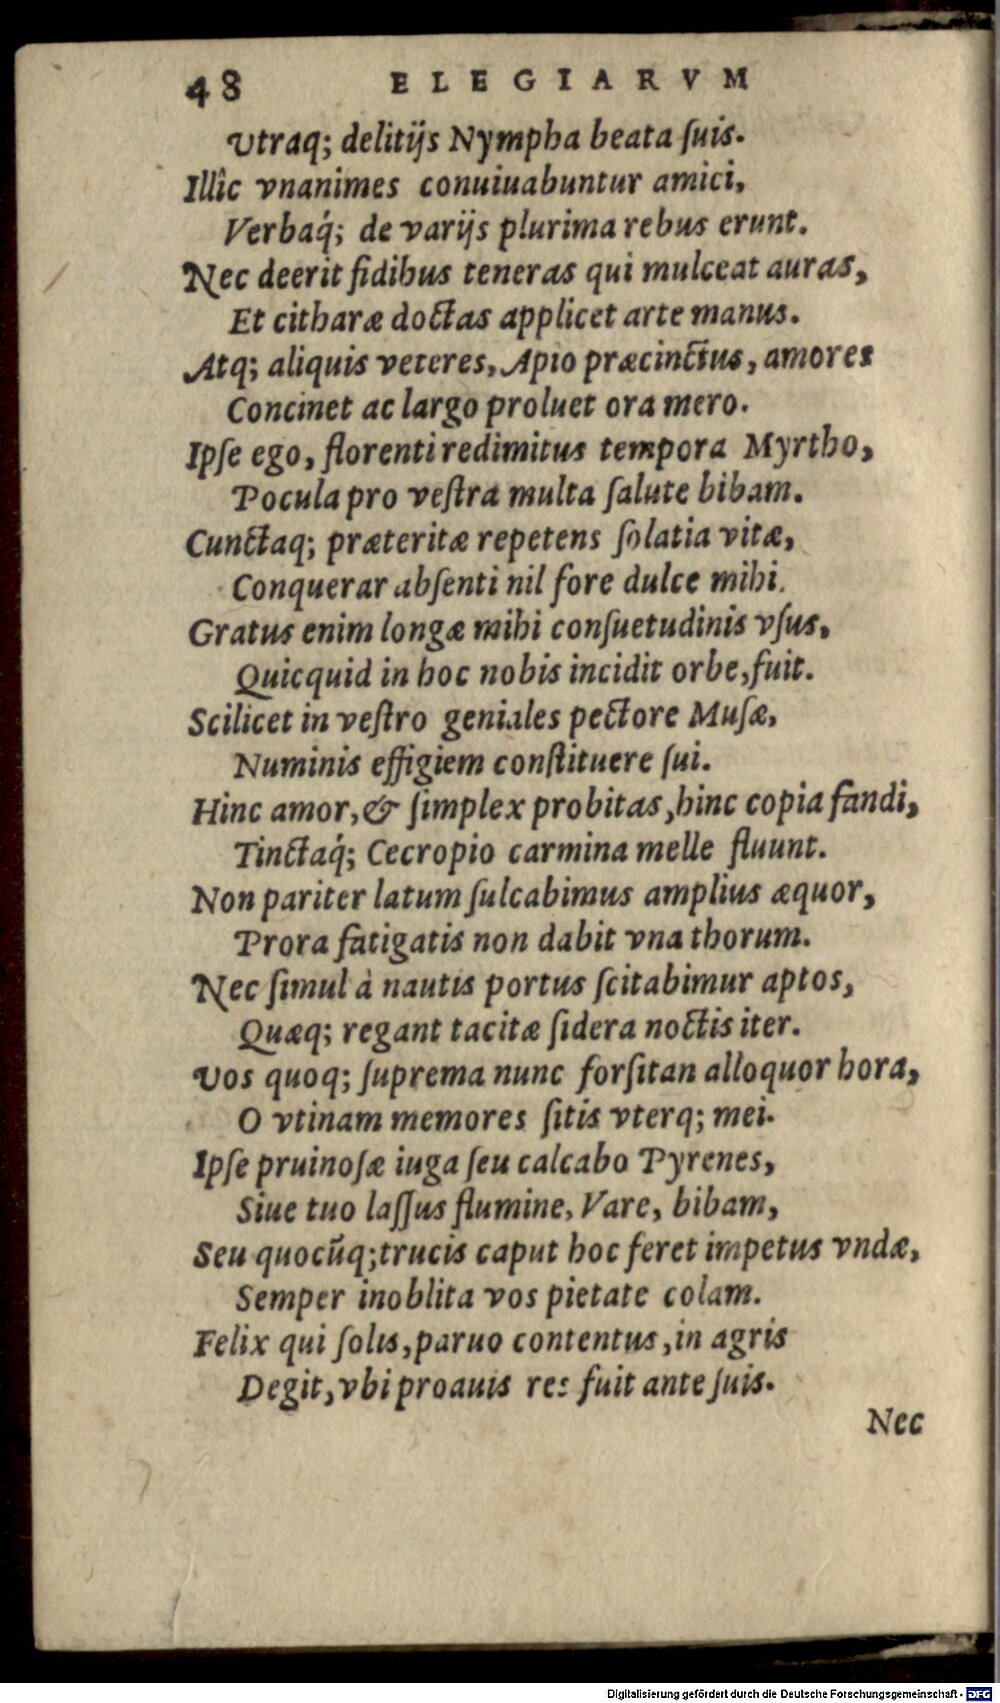 48 ELEGIARVM
Vtraq; delitijs Nympha beata ſuis.
Illîc vnanimes conuiuabuntur amici,
Verbaq́; de varijs plurima rebus erunt.
Nec deerit fidibus teneras qui mulceat auras,
Et citharæ doctas applicet arte manus.
Atq; aliquis veteres, Apio præcinctus, amores
Concinet ac largo proluet ora mero.
Ipſe ego, florenti redimitus tempora Myrtho,
Pocula pro veſtra multa ſalute bibam.
Cunctaq; præteritæ repetens ſolatia vitæ,
Conquerar abſenti nil fore dulce mihi.
Gratus enim longæ mihi conſuetudinis vſus,
Quicquid in hoc nobis incidit orbe, fuit.
Scilicet in veſtro geniales pectore Muſæ,
Numinis effigiem conſtituere ſui.
Hinc amor, & ſimplex probitas, hinc copia fandi,
Tinctaq́; Cecropio carmina melle fluunt.
Non pariter latum ſulcabimus amplius æquor,
Prora fatigatis non dabit vna thorum.
Nec ſimul à nautis portus ſcitabimur aptos,
Quæq; regant tacitæ ſidera noctis iter.
Vos quoq; ſuprema nunc forſitan alloquor hora,
O vtinam memores ſitis vterq; mei.
Ipſe pruinoſæ iuga ſeu calcabo Pyrenes,
Siue tuo laſſus flumine, Vare, bibam,
Seu quocũq; trucis caput hoc feret impetus vndæ,
Semper inoblita vos pietate colam.
Felix qui ſolis, paruo contentus, in agris
Degit, vbi proauis res fuit ante ſuis.
Nec
Digitalisierung gefördert durch die Deutsche Forschungsgemeinschaft - DFG